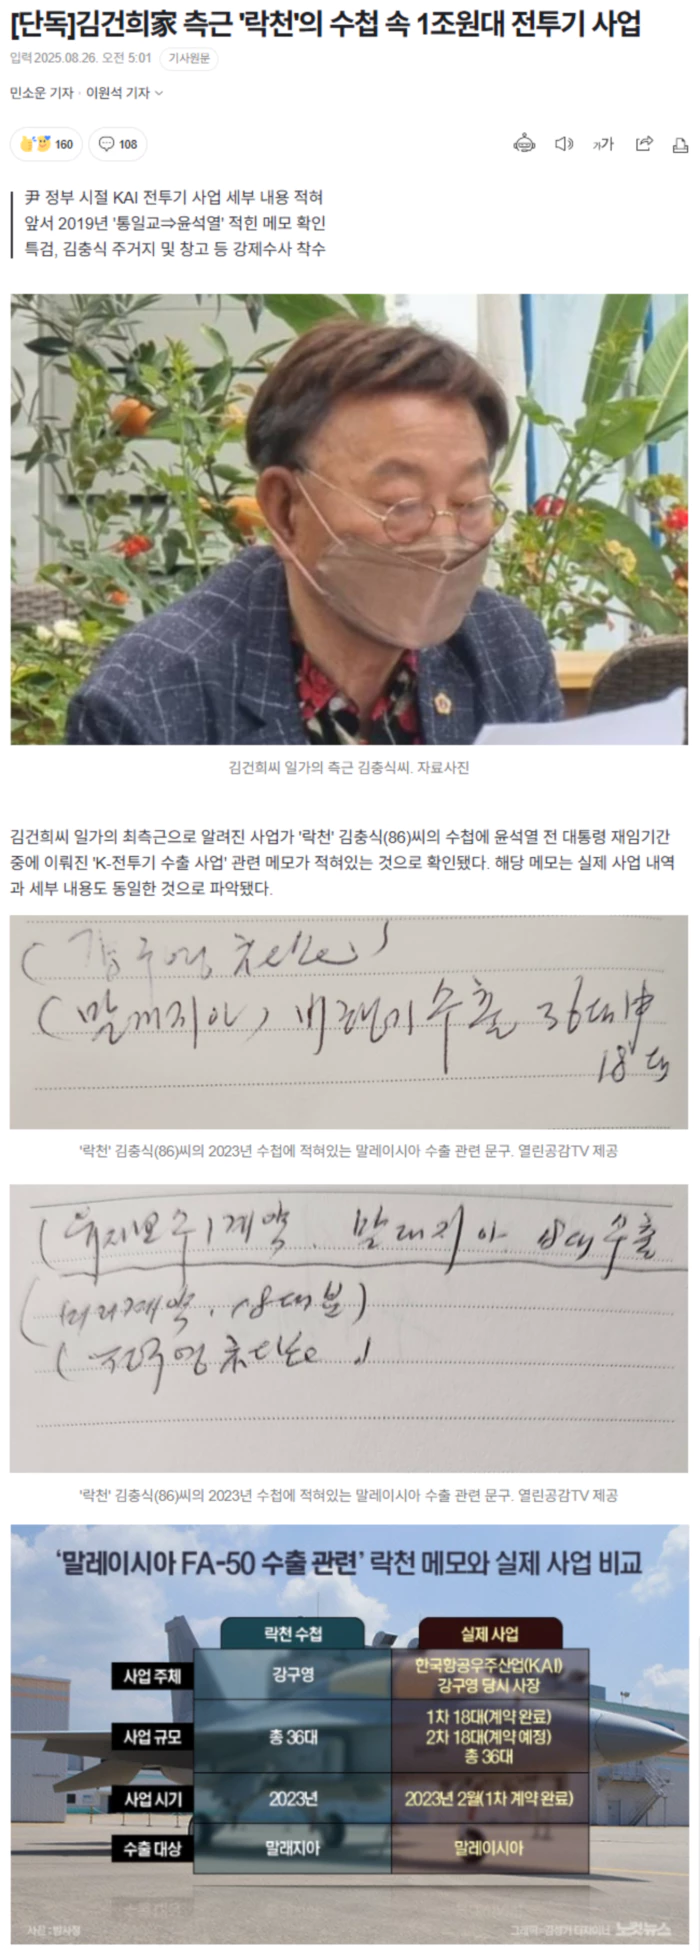 [단독]김건희家 측근 '락천'의 수첩 속 1조원대 전투기 사업
입력2025.08.26. 오전 5:01 기사원문
민소운 기자 · 이원석 기자
160 108
가가
尹 정부 시절 KAI 전투기 사업 세부 내용 적혀
앞서 2019년 '통일교⇒윤석열' 적힌 메모 확인
특검, 김충식 주거지 및 창고 등 강제수사 착수
김건희씨 일가의 측근 김충식씨. 자료사진
김건희씨 일가의 최측근으로 알려진 사업가 '락천' 김충식(86)씨의 수첩에 윤석열 전 대통령 재임기간
중에 이뤄진 'K-전투기 수출 사업' 관련 메모가 적혀있는 것으로 확인됐다. 해당 메모는 실제 사업 내역
과 세부 내용도 동일한 것으로 파악됐다.
(강구영
(말래지아) 비행기 수출 36대中
18대
'락천' 김충식(86)씨의 2023년 수첩에 적혀있는 말레이시아 수출 관련 문구. 열린공감TV 제공
(유지보수)계약. 말래지아. 수출
(미리계약. 18대분)
'락천' 김충식(86)씨의 2023년 수첩에 적혀있는 말레이시아 수출 관련 문구. 열린공감TV 제공
'말레이시아 FA-50 수출 관련' 락천 메모와 실제 사업 비교
락천 수첩 실제 사업
사업 주체 강구영 한국항공우주산업(KAI)
강구영 당시 사장
사업 규모 총 36대 1차 18대(계약 완료)
2차 18대(계약 예정)
총 36대
사업 시기 2023년 2023년 2월(1차 계약 완료)
수출 대상 말래지아 말레이시아
사진=방사청 그래픽= 디자이너 노컷뉴스